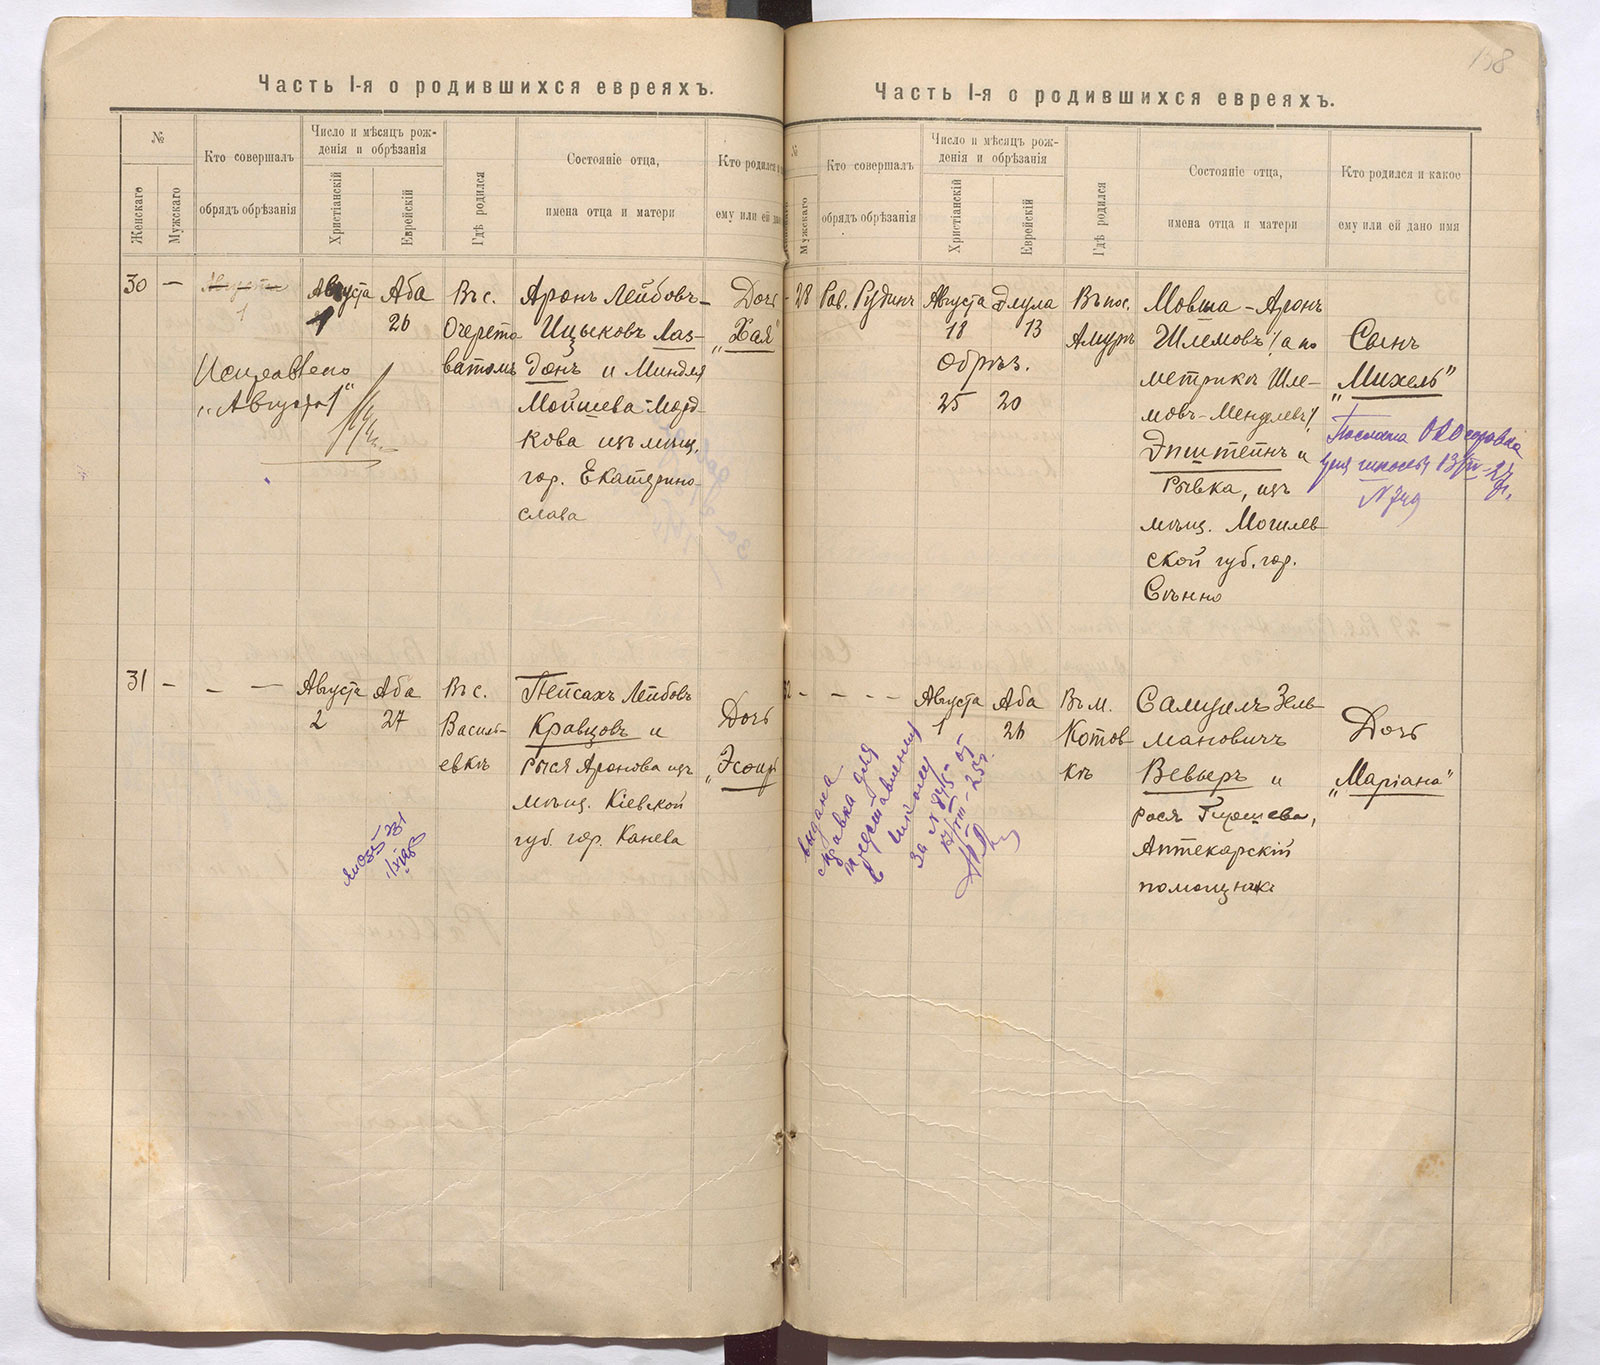 Часть I-я о родившихся евреяхъ.
№
Женскаго
Мужскаго
Кто совершалъ
обрядъ обрѣзанія
Число и мѣсяцъ рож-
денія и обрѣзанія
Христіанскій
Еврейскій
Гдѣ родился
Состояніе отца,
имена отца и матери
Кто родился
ему или ей
30
—
Августа
1
Исправлено
„Августа 1"
Августа
1
Аба
26
Въ с.
Очерето
ватомъ
Аронъ Лейбовъ-
Ицыковъ Лаз-
донъ и Миндля
Мойшева-Морд
кова изъ мѣщ.
гор. Екатерино-
слава
Дочь
„Хая"
31
— — —
Августа
2
Аба
27
Въ с.
Василь-
евкѣ
Пейсахъ Лейбовъ
Кравцовъ и
Рыся Аронова изъ
мѣщ. Кіевской
губ. гор. Канева
Дочь
158
Часть I-я о родившихся евреяхъ.
№
Мужскаго
Кто совершалъ
обрядъ обрѣзанія
Число и мѣсяцъ рож-
денія и обрѣзанія
Христіанскій
Еврейскій
Гдѣ родился
Состояніе отца,
имена отца и матери
Кто родился и какое
ему или ей дано имя
- 28
Рав. Рудинъ
Августа
18
Обрѣз.
25
Элула
13
20
Въ пос.
Амуръ
Мовша-Аронъ
Шлемовъ /а по
метрикѣ Шле-
мовъ-Менделевъ/
Эпштейнъ и
Рывка, изъ
мѣщ. Могилев
ской губ. гор.
Сѣнно
Сынъ
„Михель"
Послана
N 749
— — — —
Августа
1
Аба
26
Въ м.
Котов
кѣ
Самуилъ Зель
мановичъ
Веверъ и
Рася Гиршева,
Аптекарскій
помощникъ
Дочь
„Маріана"
выдана
справка для
представления
в школу
за N 845 от